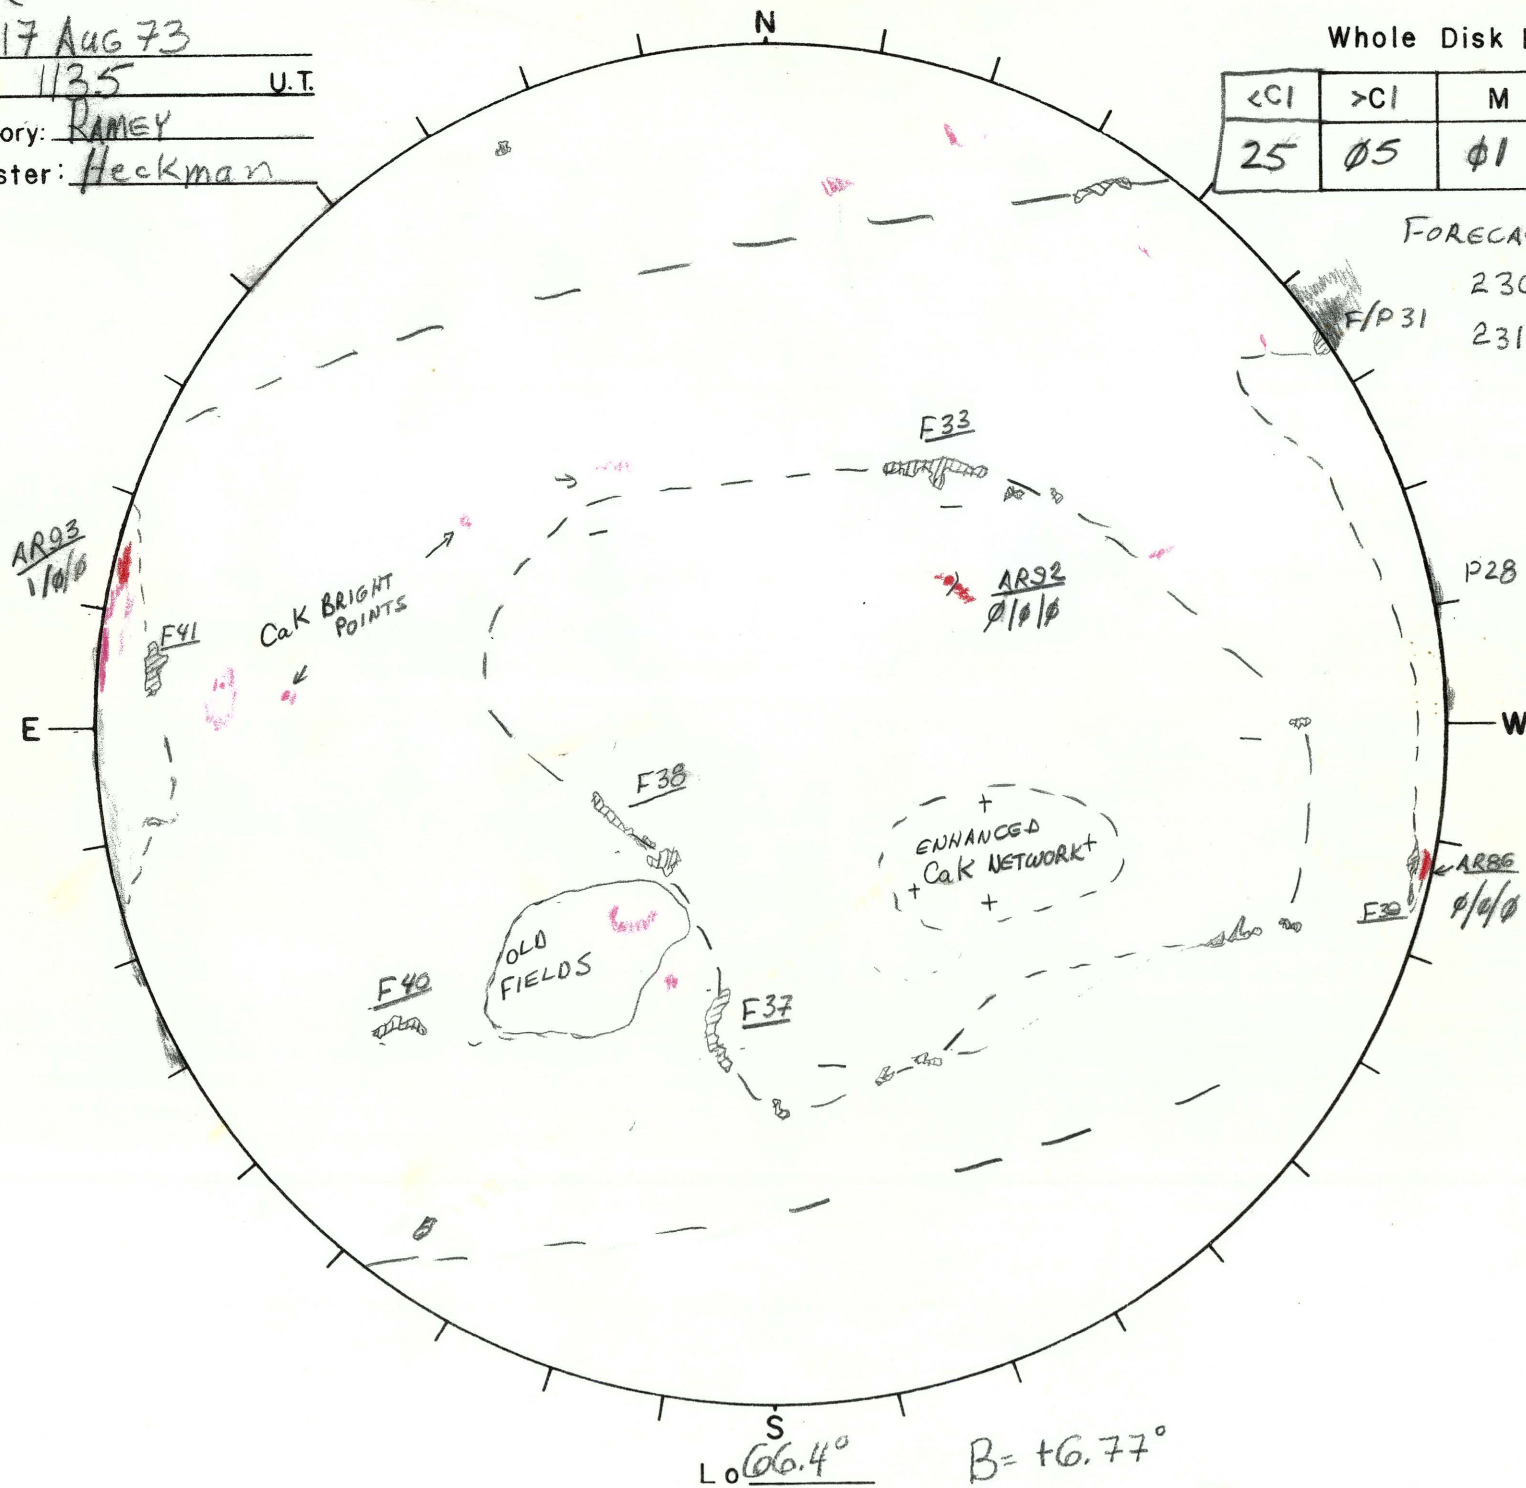 17 Aug 73
1135 U.T.
ory: RAMEY
ster: Heckman
N
Whole Disk
<C1 >C1 M
25 Ø5 Ø1
FORECA
230
231
F/P31
F33
AR93
1/Ø/Ø
CaK BRIGHT
POINTS
F41
AR92
Ø/Ø/Ø
P28
E
W
F38
ENHANCED
CaK NETWORK
+ + + +
AR86
Ø/Ø/Ø
OLD
FIELDS
F40
F37
S
Lo 66.4°
B= +6.77°